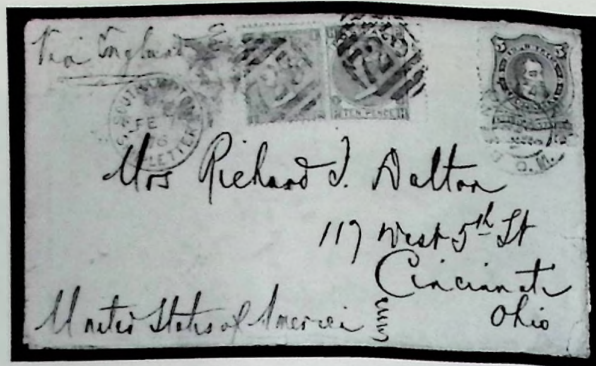 Via England
TEN PENCE
5 5
FE
LETTER
Mrs Richard J. Dalton
117 West 5th St
Cincinnati
Ohio
United States of America